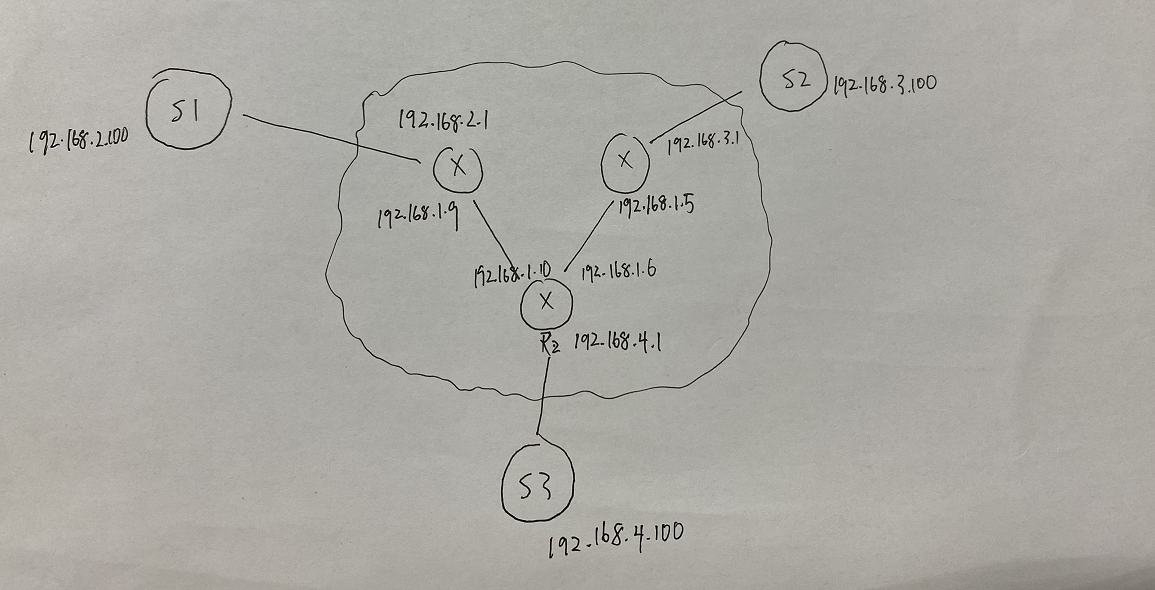 S1
192.168.2.100
192.168.2.1
X
192.168.1.9
S2
192.168.3.100
X
192.168.3.1
192.168.1.5
192.168.1.10
192.168.1.6
X
R2
192.168.4.1
S3
192.168.4.100